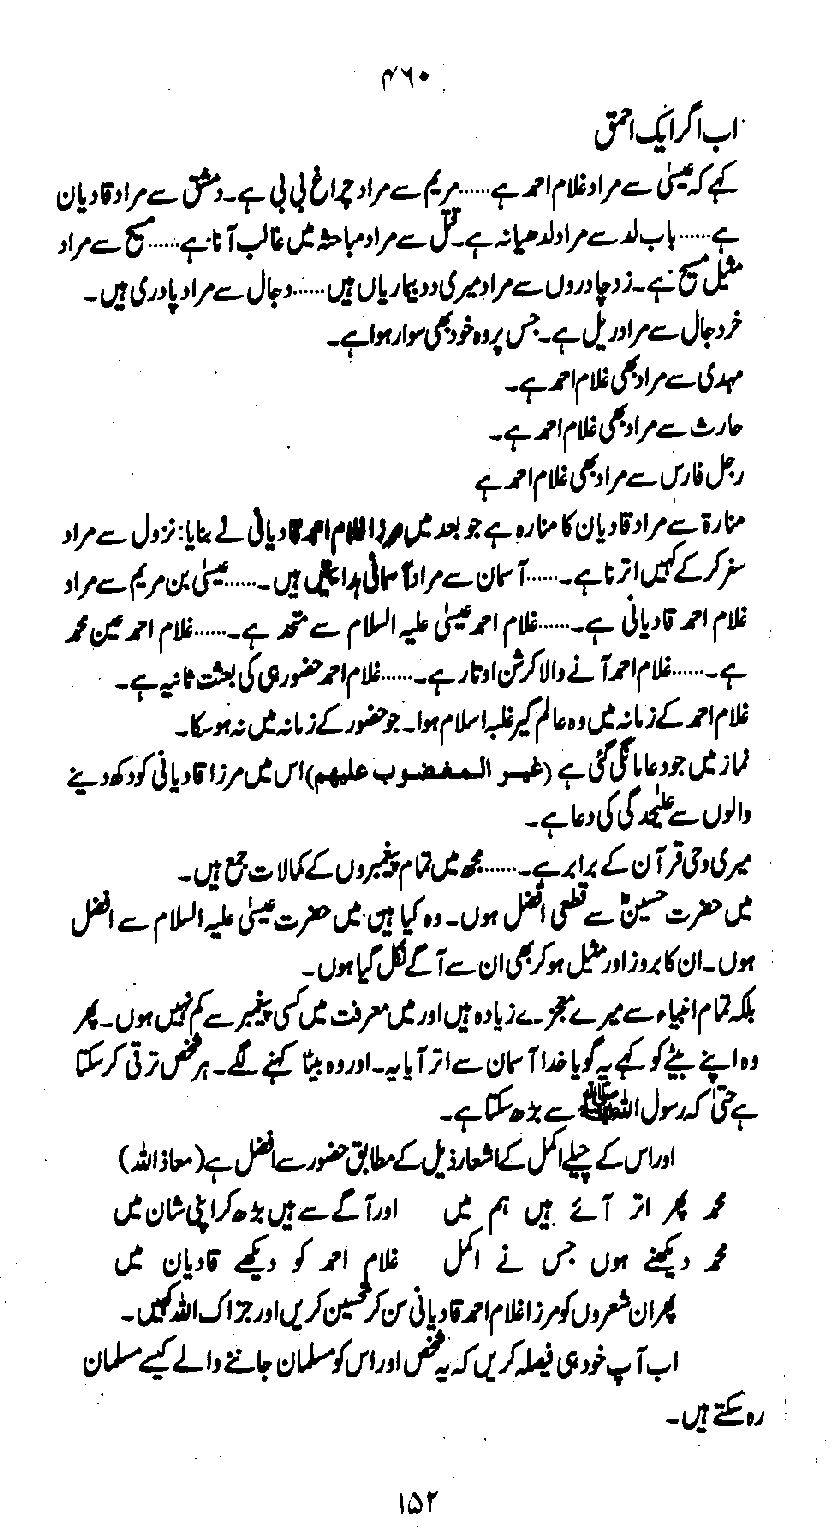 ۴۶۰
اب اگر ایک احمق
کہے کہ عیسیٰ سے مراد غلام احمد ہے......مریم سے مراد چراغ بی بی ہے۔دمشق سے مراد قادیان
ہے......باب لد سے مراد لدھیانہ ہے۔قتل سے مراد مباحثہ میں غالب آنا ہے......مسیح سے مراد
مثیل مسیح ہے۔زرد چادروں سے مراد میری دو بیماریاں ہیں......دجال سے مراد پادری ہیں۔
خر دجال سے مراد ریل ہے۔جس پر وہ خود بھی سوار ہوا ہے۔
مہدی سے مراد بھی غلام احمد ہے۔
حارث سے مراد بھی غلام احمد ہے۔
رجل فارس سے مراد بھی غلام احمد ہے
منارۃ سے مراد قادیان کا منارہ ہے جو بعد میں مرزا غلام احمد قادیانی نے بنایا:نزول سے مراد
سفر کر کے کہیں اترنا ہے۔......آسمان سے مراد آسمانی ہدایتیں ہیں۔......عیسیٰ بن مریم سے مراد
غلام احمد قادیانی ہے۔......غلام احمد عیسیٰ علیہ السلام سے متحد ہے۔......غلام احمد عین محمد
ہے۔......غلام احمد آنے والا کرشن اوتار ہے۔......غلام احمد حضور ہی کی بعثت ثانیہ ہے۔
غلام احمد کے زمانہ میں وہ عالم گیر غلبہ اسلام ہوا۔جو حضور کے زمانہ میں نہ ہو سکا۔
نماز میں جو دعا مانگی گئی ہے (غیر المغضوب علیهم) اس میں مرزا قادیانی کو دکھ دینے
والوں سے علیٰحدگی کی دعا ہے۔
میری وحی قرآن کے برابر ہے۔......مجھ میں تمام پیغمبروں کے کمالات جمع ہیں۔
میں حضرت حسینؓ سے قطعی افضل ہوں۔وہ کیا ہیں میں حضرت عیسیٰ علیہ السلام سے افضل
ہوں۔ان کا بروز اور مثیل ہو کر بھی ان سے آگے نکل گیا ہوں۔
بلکہ تمام انبیاء سے میرے معجزے زیادہ ہیں اور میں معرفت میں کسی پیغمبر سے کم نہیں ہوں۔پھر
وہ اپنے بیٹے کو کہے یہ گویا خدا آسمان سے اتر آیا یہ۔اور وہ بیٹا کہنے لگے۔ہر شخص ترقی کر سکتا
ہے حتیٰ کہ رسول اللہ ﷺ سے بڑھ سکتا ہے۔
اور اس کے چیلے اکمل کے اشعار ذیل کے مطابق حضور سے افضل ہے (معاذ اللہ)
محمد پھر اتر آئے ہیں ہم میں اور آگے سے ہیں بڑھ کر اپنی شان میں
محمد دیکھنے ہوں جس نے اکمل غلام احمد کو دیکھے قادیان میں
پھر ان شعروں کو مرزا غلام احمد قادیانی سن کر تحسین کریں اور جزاک اللہ کہیں۔
اب آپ خود ہی فیصلہ کریں کہ یہ شخص اور اس کو مسلمان جاننے والے کیسے مسلمان
رہ سکتے ہیں۔
۱۵۲